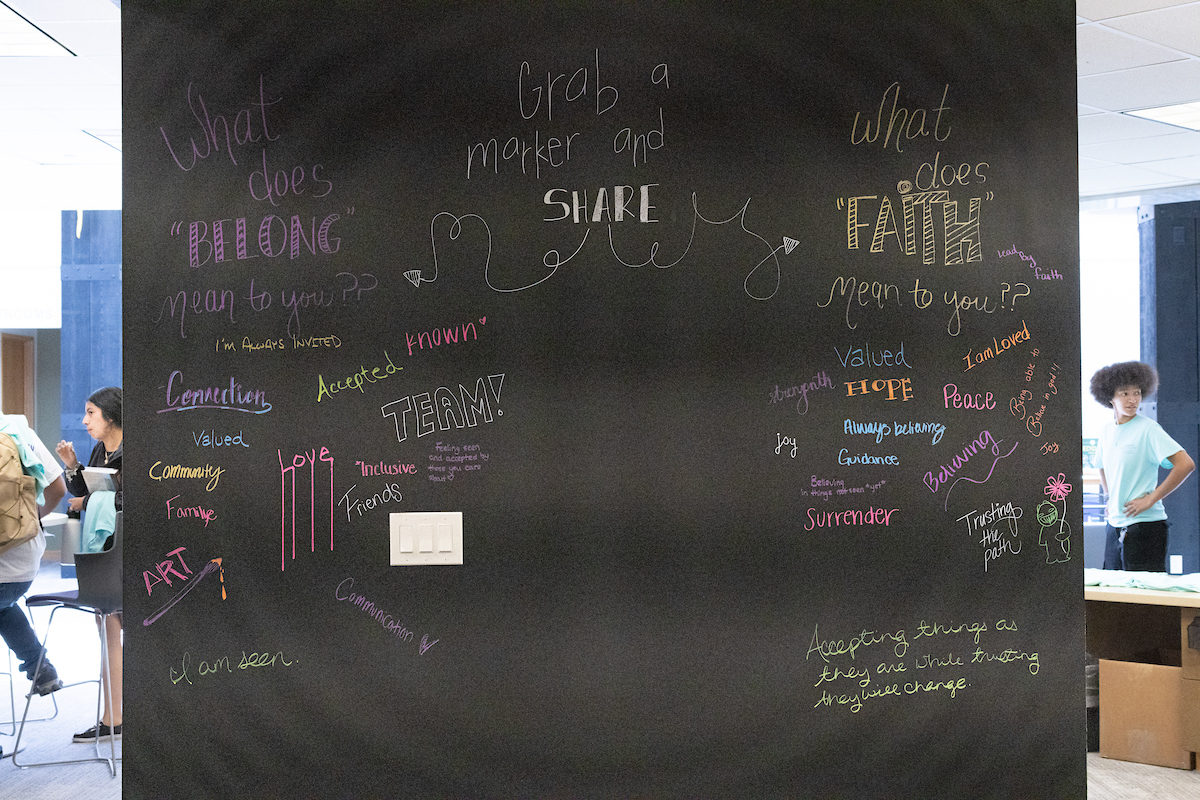 Grab a
marker and
SHARE
What
does
"BELONG"
mean to you??
I'm ALWAYS INVITED
known
Accepted
Connection
TEAM!
Valued
Feeling seen
and accepted by
those you care
about
Community
Love
*Inclusive
Friends
ART
Communication
I am seen.
What
does
"FAITH"
mean to you??
Lead By
faith
Valued
I am Loved
strength
HOPE
Peace
Being able to
Believe in good!!
Always believing
Joy
Guidance
Believing
Joy
Believing
in things not seen *yet*
Surrender
Trusting
the
path
Accepting things as
they are while trusting
they will change.